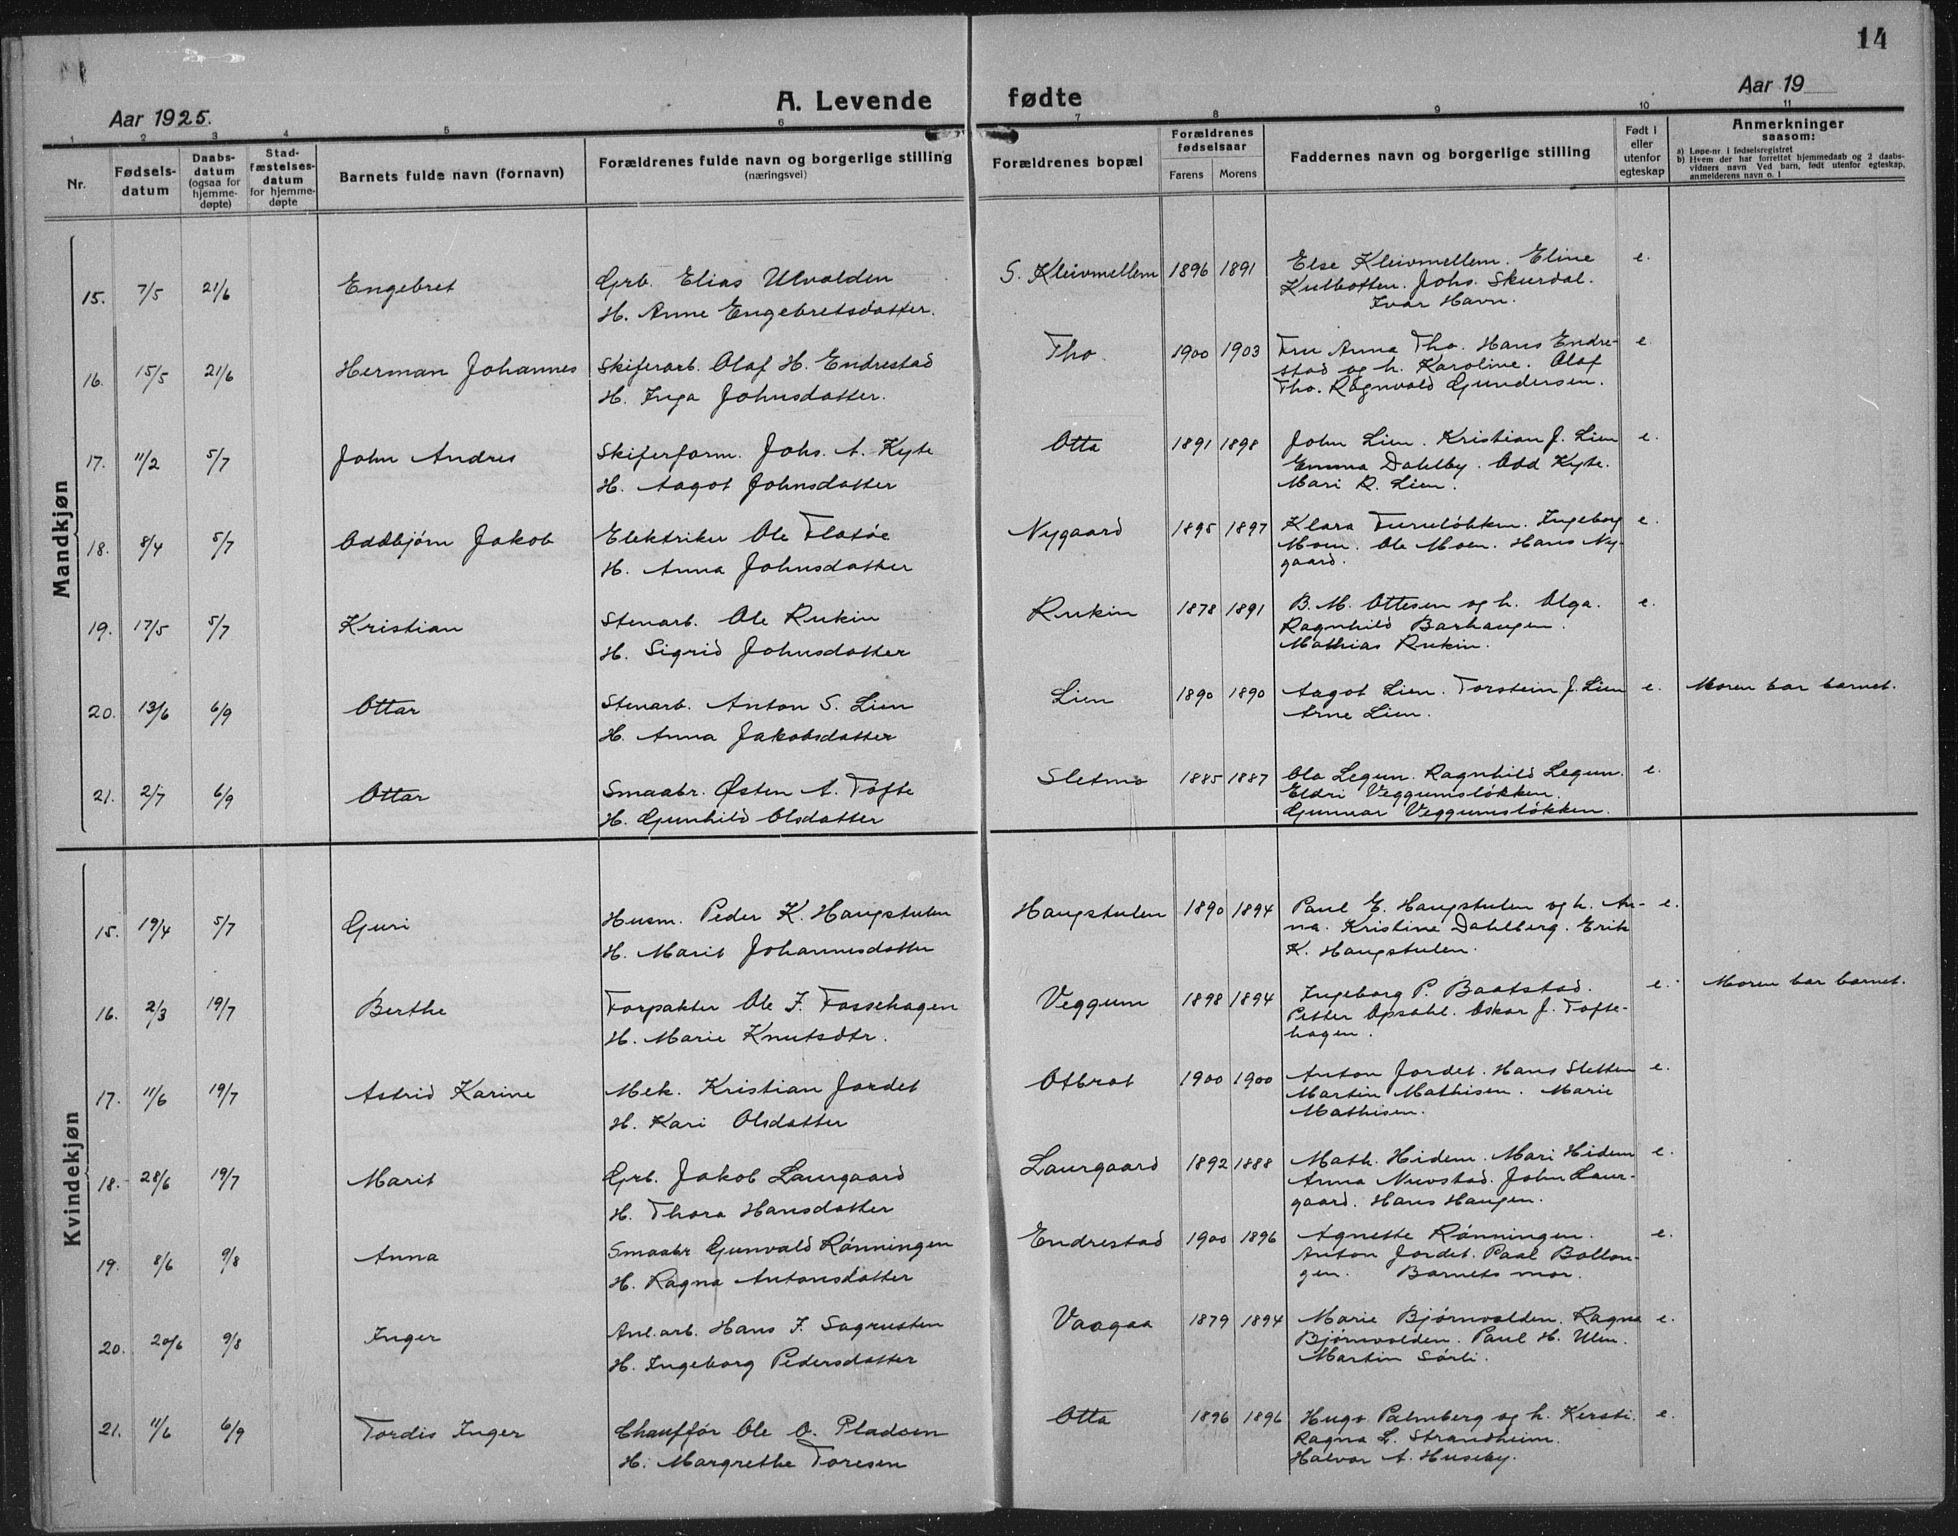 14
Aar 1925.
A. Levende fødte
Aar 19
1 2 3 4 5 6 7 8 9 10 11
Nr.
Fødsels-
datum
Daabs-
datum
(ogsaa for
hjemme-
døpte)
Stad-
fæstelses-
datum
for hjemme-
døpte
Barnets fulde navn (fornavn)
Forældrenes fulde navn og borgerlige stilling
(næringsvei)
Forældrenes bopæl
Forældrenes
fødselsaar
Farens Morens
Faddernes navn og borgerlige stilling
Født i
eller
utenfor
egteskap
Anmerkninger
saasom:
a) Løpe-nr. i fødselsregistret
b) Hvem der har forrettet hjemmedaab og 2 daabs-
vidners navn Ved barn, født utenfor egteskap,
anmelderens navn o. l
Mandkjøn
15. 7/5 21/6 Engebret Grb. Elias Ulvolden S. Kleivmellem 1896 1891 Else Kleivmellem. Eline e.
H. Anne Engebretsdatter. Kulbotten. Johs. Skurdal.
Ivar Havn.
16. 15/5 21/6 Herman Johannes Skiferarb. Olaf H. Endrestad Tho 1900 1903 Fru Anna Tho. Hans Endre- e.
H. Inga Johnsdatter. stad og h. Karoline. Olaf
Tho. Ragnvald Gundersen.
17. 11/2 5/7 John Andres Skiferform. Johs. A. Kyte Otta 1891 1898 John Lien. Kristian J. Lien e.
H. Aagot Johnsdatter Emma Dahlby. Odd Kyte.
Mari R. Lien.
18. 8/4 5/7 Oddbjørn Jakob Elektriker Ole Flatøe Nygaard 1895 1897 Klara Furuløkken. Ingeborg e.
H. Anna Johnsdatter Moen. Ole Moen. Hans Ny-
gaard.
19. 17/5 5/7 Kristian Stenarb. Ole Rukin Rukin 1878 1891 B. M. Ottesen og h. Olga. e.
H. Sigrid Johnsdatter Ragnhild Barhaugen.
Mathias Rukin.
20. 13/6 6/9 Ottar Stenarb. Anton S. Lien Lien 1890 1890 Aagot Lien. Torstein J. Lien e. Moren bar barnet.
H. Anna Jakobsdatter Arne Lien.
21. 2/7 6/9 Ottar Smaabr. Østen A. Tofte Sletmo 1885 1887 Ola Legun. Ragnhild Legun. e.
H. Gunhild Olsdatter Eldri Veggumsløkken.
Gunnar Veggumsløkken.
Kvindekjøn
15. 19/4 5/7 Guri Husm. Peder K. Haugstulen Haugstulen 1890 1894 Paul E. Haugstulen og h. An- e.
H. Marit Johannesdatter na. Kristine Dahlberg. Erik
K. Haugstulen.
16. 2/3 19/7 Berthe Forpakter Ole J. Fossehagen Veggum 1898 1894 Ingeborg P. Baatstad. e. Moren bar barnet.
H. Marie Knutsdtr. Petter Opsahl. Oskar J. Tofte-
hagen.
17. 11/6 19/7 Astrid Karine Mek. Kristian Jordet Otbrot 1900 1900 Anton Jordet. Hans Sletten e.
H. Kari Olsdatter Martin Mathisen. Marie
Mathisen.
18. 28/6 19/7 Marit Grb. Jakob Laurgaard Laurgaard 1892 1888 Math. Hidem. Mari Hidem e.
H. Thora Hansdatter Anna Nuvstad. John Laur-
gaard. Hans Haugen.
19. 8/6 9/8 Anna Smaabr Gunvald Rønningen Endrestad 1900 1896 Agnethe Rønningen. e.
H. Ragna Antonsdatter Anton Jordet. Paal Bollon-
gen. Barnets mor.
20. 20/6 9/8 Inger Anl.arb. Hans J. Sagrusten Vaagaa 1879 1894 Marie Bjørnvolden. Ragna e.
H. Ingeborg Pedersdatter Bjørnvolden. Paul H. Ulen.
Martin Sørli.
21. 11/6 6/9 Tordis Inger Chauffør Ole O. Pladsen Otta 1896 1896 Hugo Palmberg og h. Kersti. e.
H. Margrethe Toresen Ragna L. Strandheim.
Halvor A. Huseby.